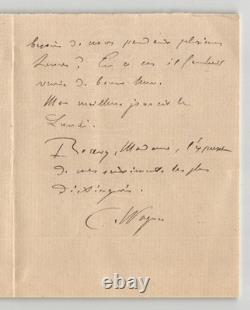 besoin de vous pendant plusieurs
heures ? En ce cas il faudrait
venir de bonne heure.
Mon meilleur jour est le
Lundi.
Recevez, Madame, l'expression
de mes sentiments les plus
distingués.
C. Wagner